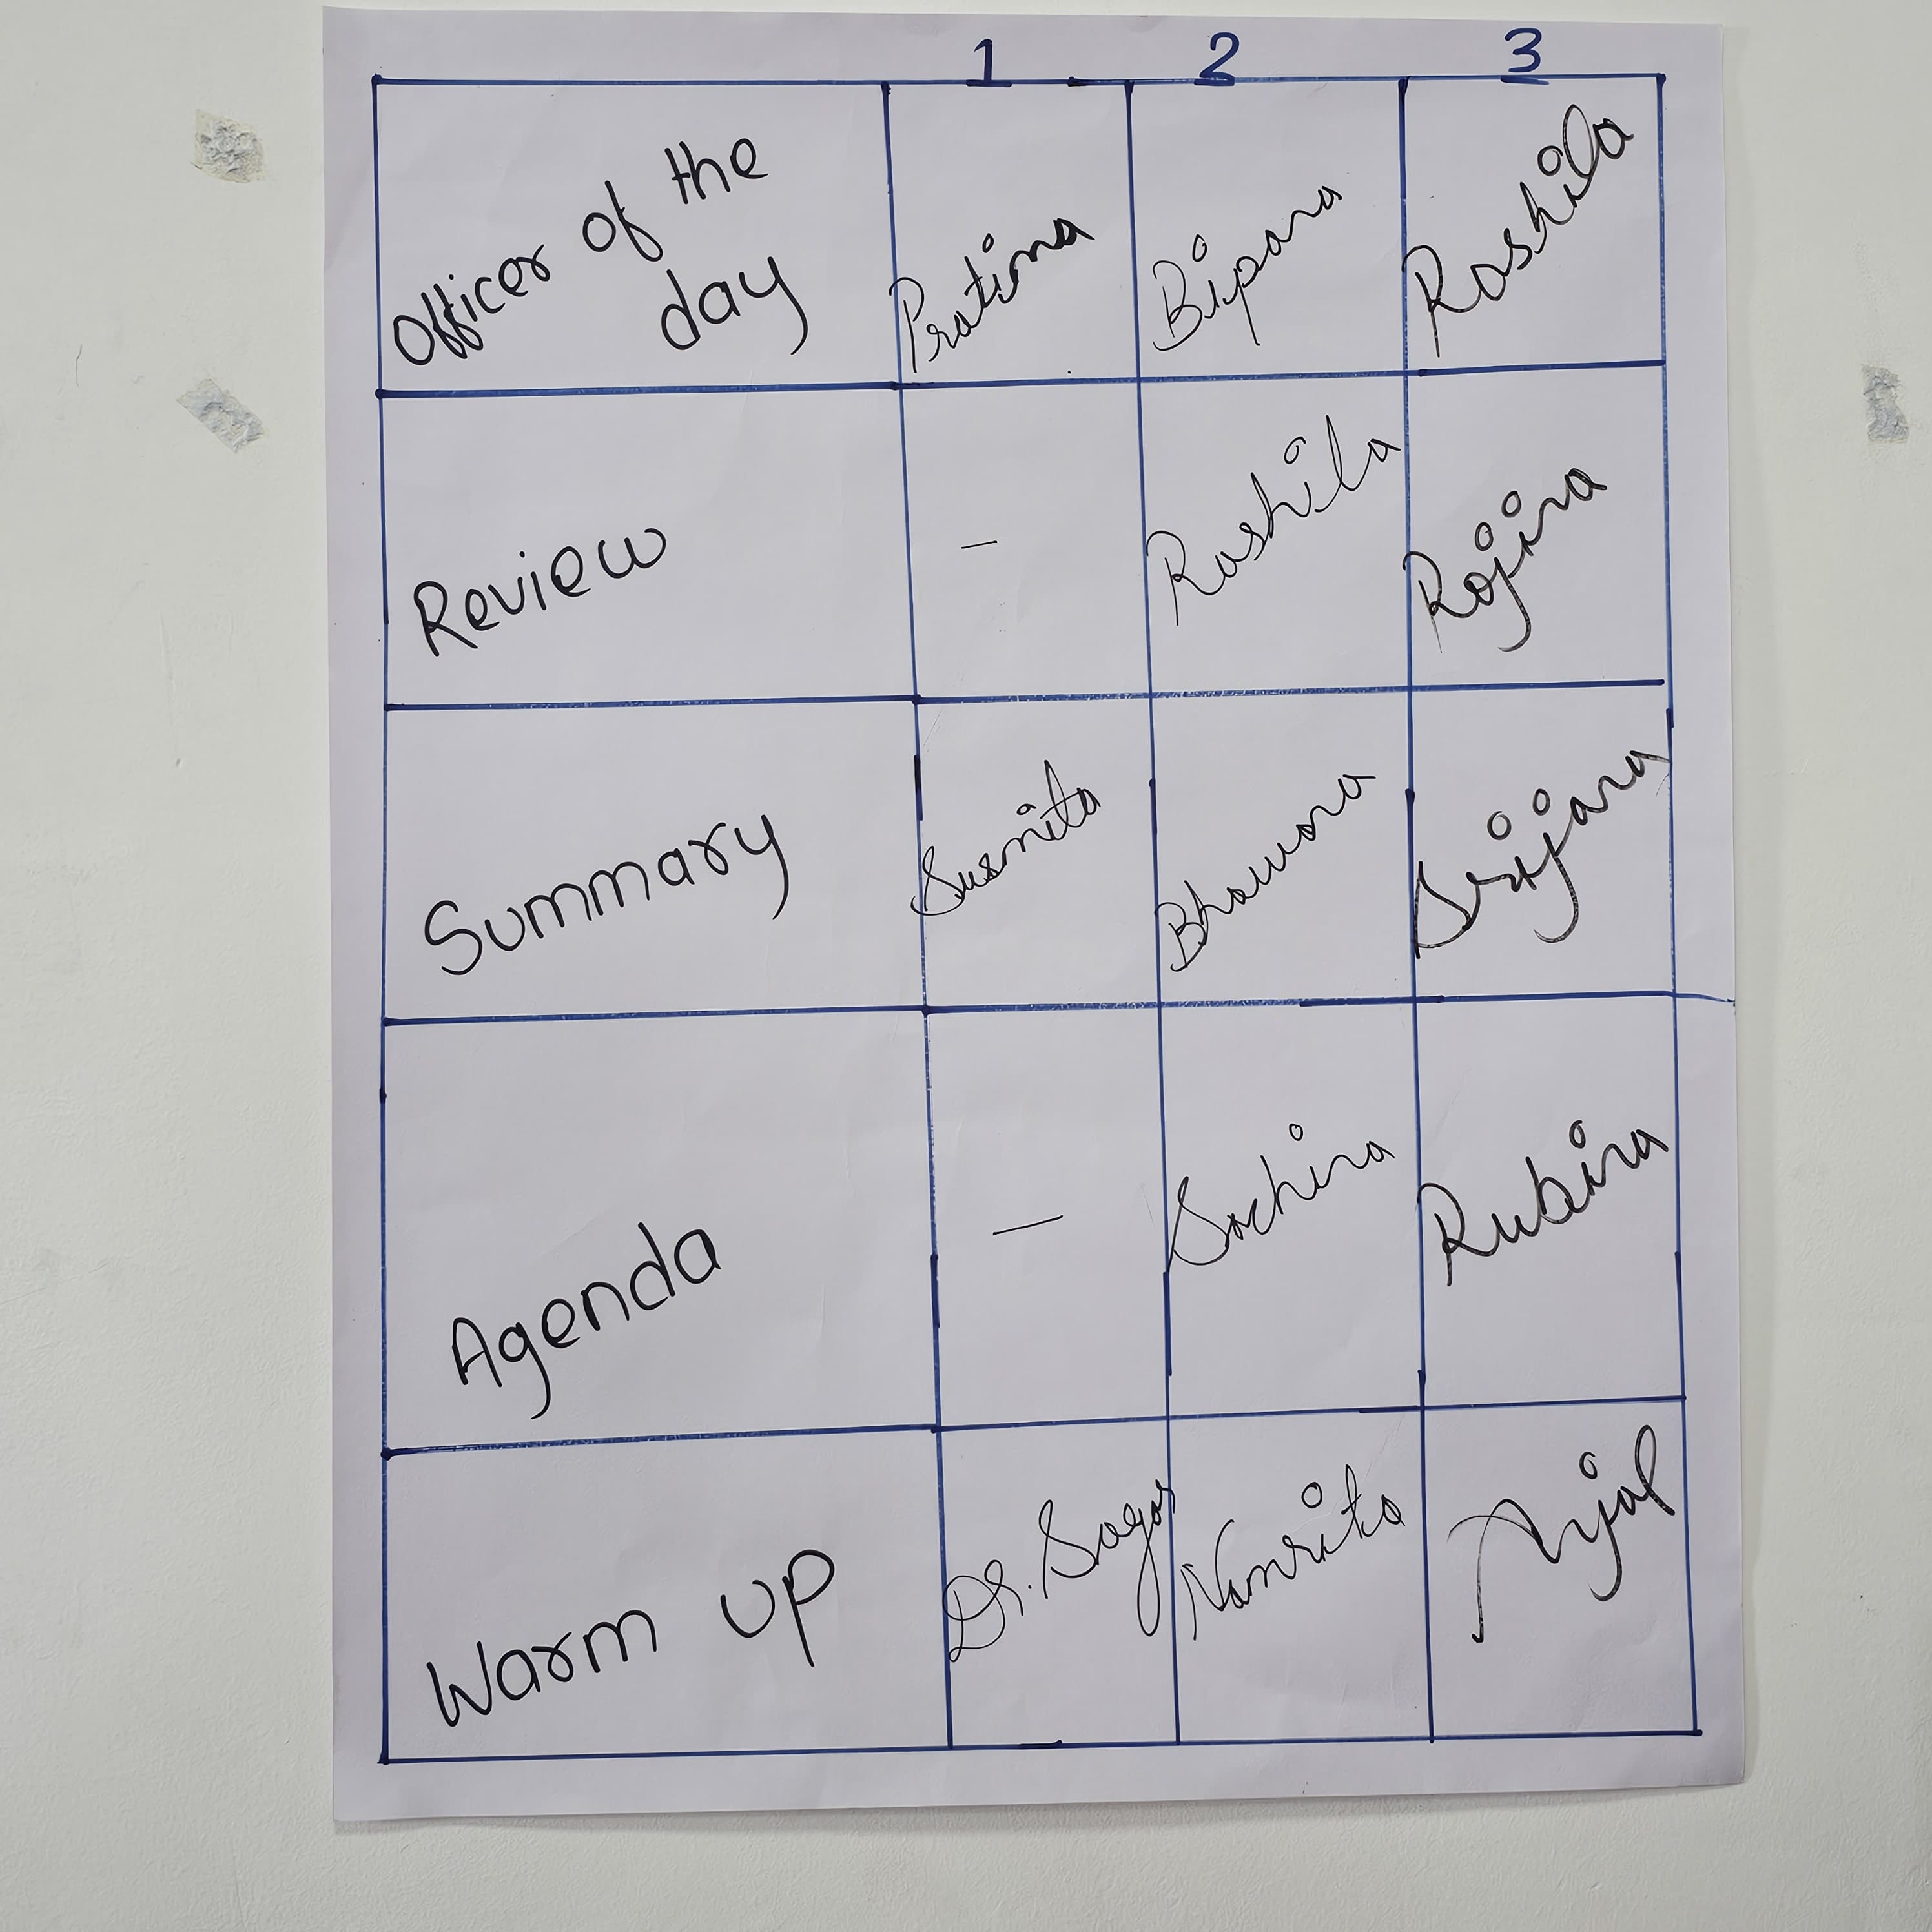 1 2 3
Officer of the day Pratima Bipana Roshila
Review - Roshila Rojina
Summary Susmita Bhawana Srijana
Agenda - Sachina Rubina
Warm up Dr. Sagar Namrita